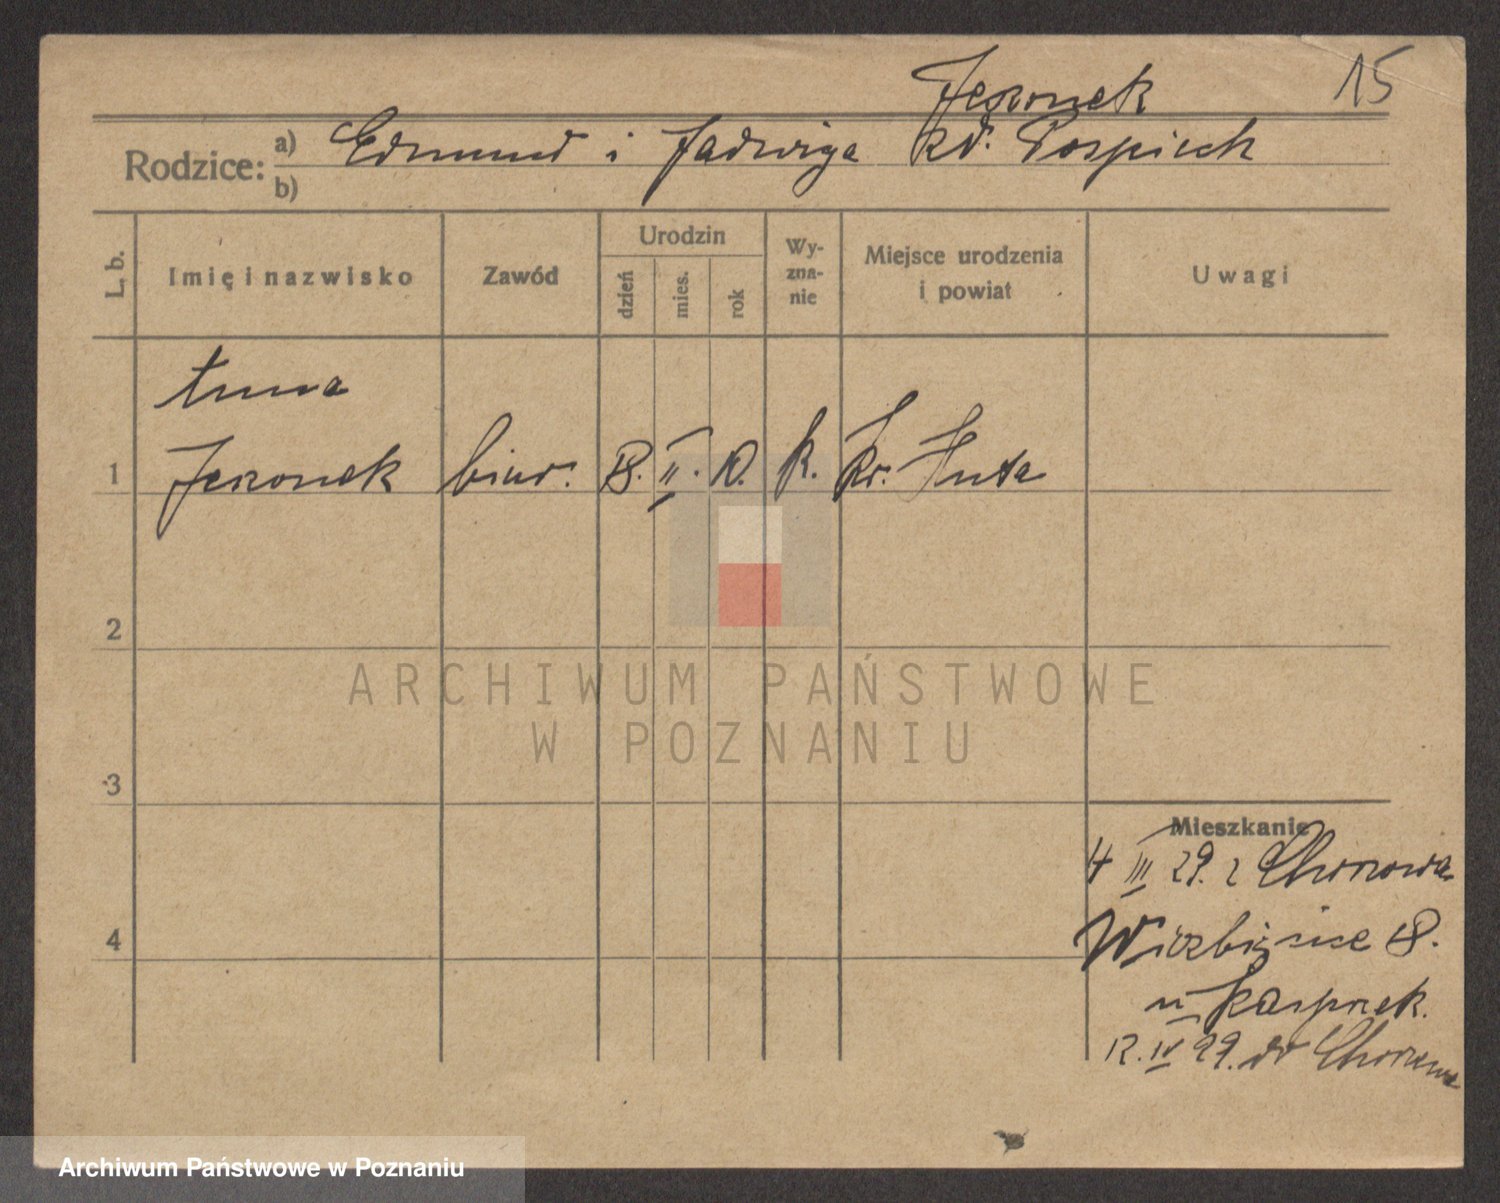 15
Jezonek
Rodzice: a) Edmund i Jadwiga zd. Pospiech
b)
L. b.
Imię i nazwisko
Zawód
Urodzin
dzień
mies.
rok
Wy-
zna-
nie
Miejsce urodzenia
i powiat
Uwagi
Anna
1 Jezonek biur. 18. II. 10. k. Kr. Huta
2
ARCHIWUM PAŃSTWOWE
W POZNANIU
3
Mieszkanie
4 III 29. z Chorzowa
18.
4
u Kasprzek.
12. IV 29. do Chorzowa
Archiwum Państwowe w Poznaniu